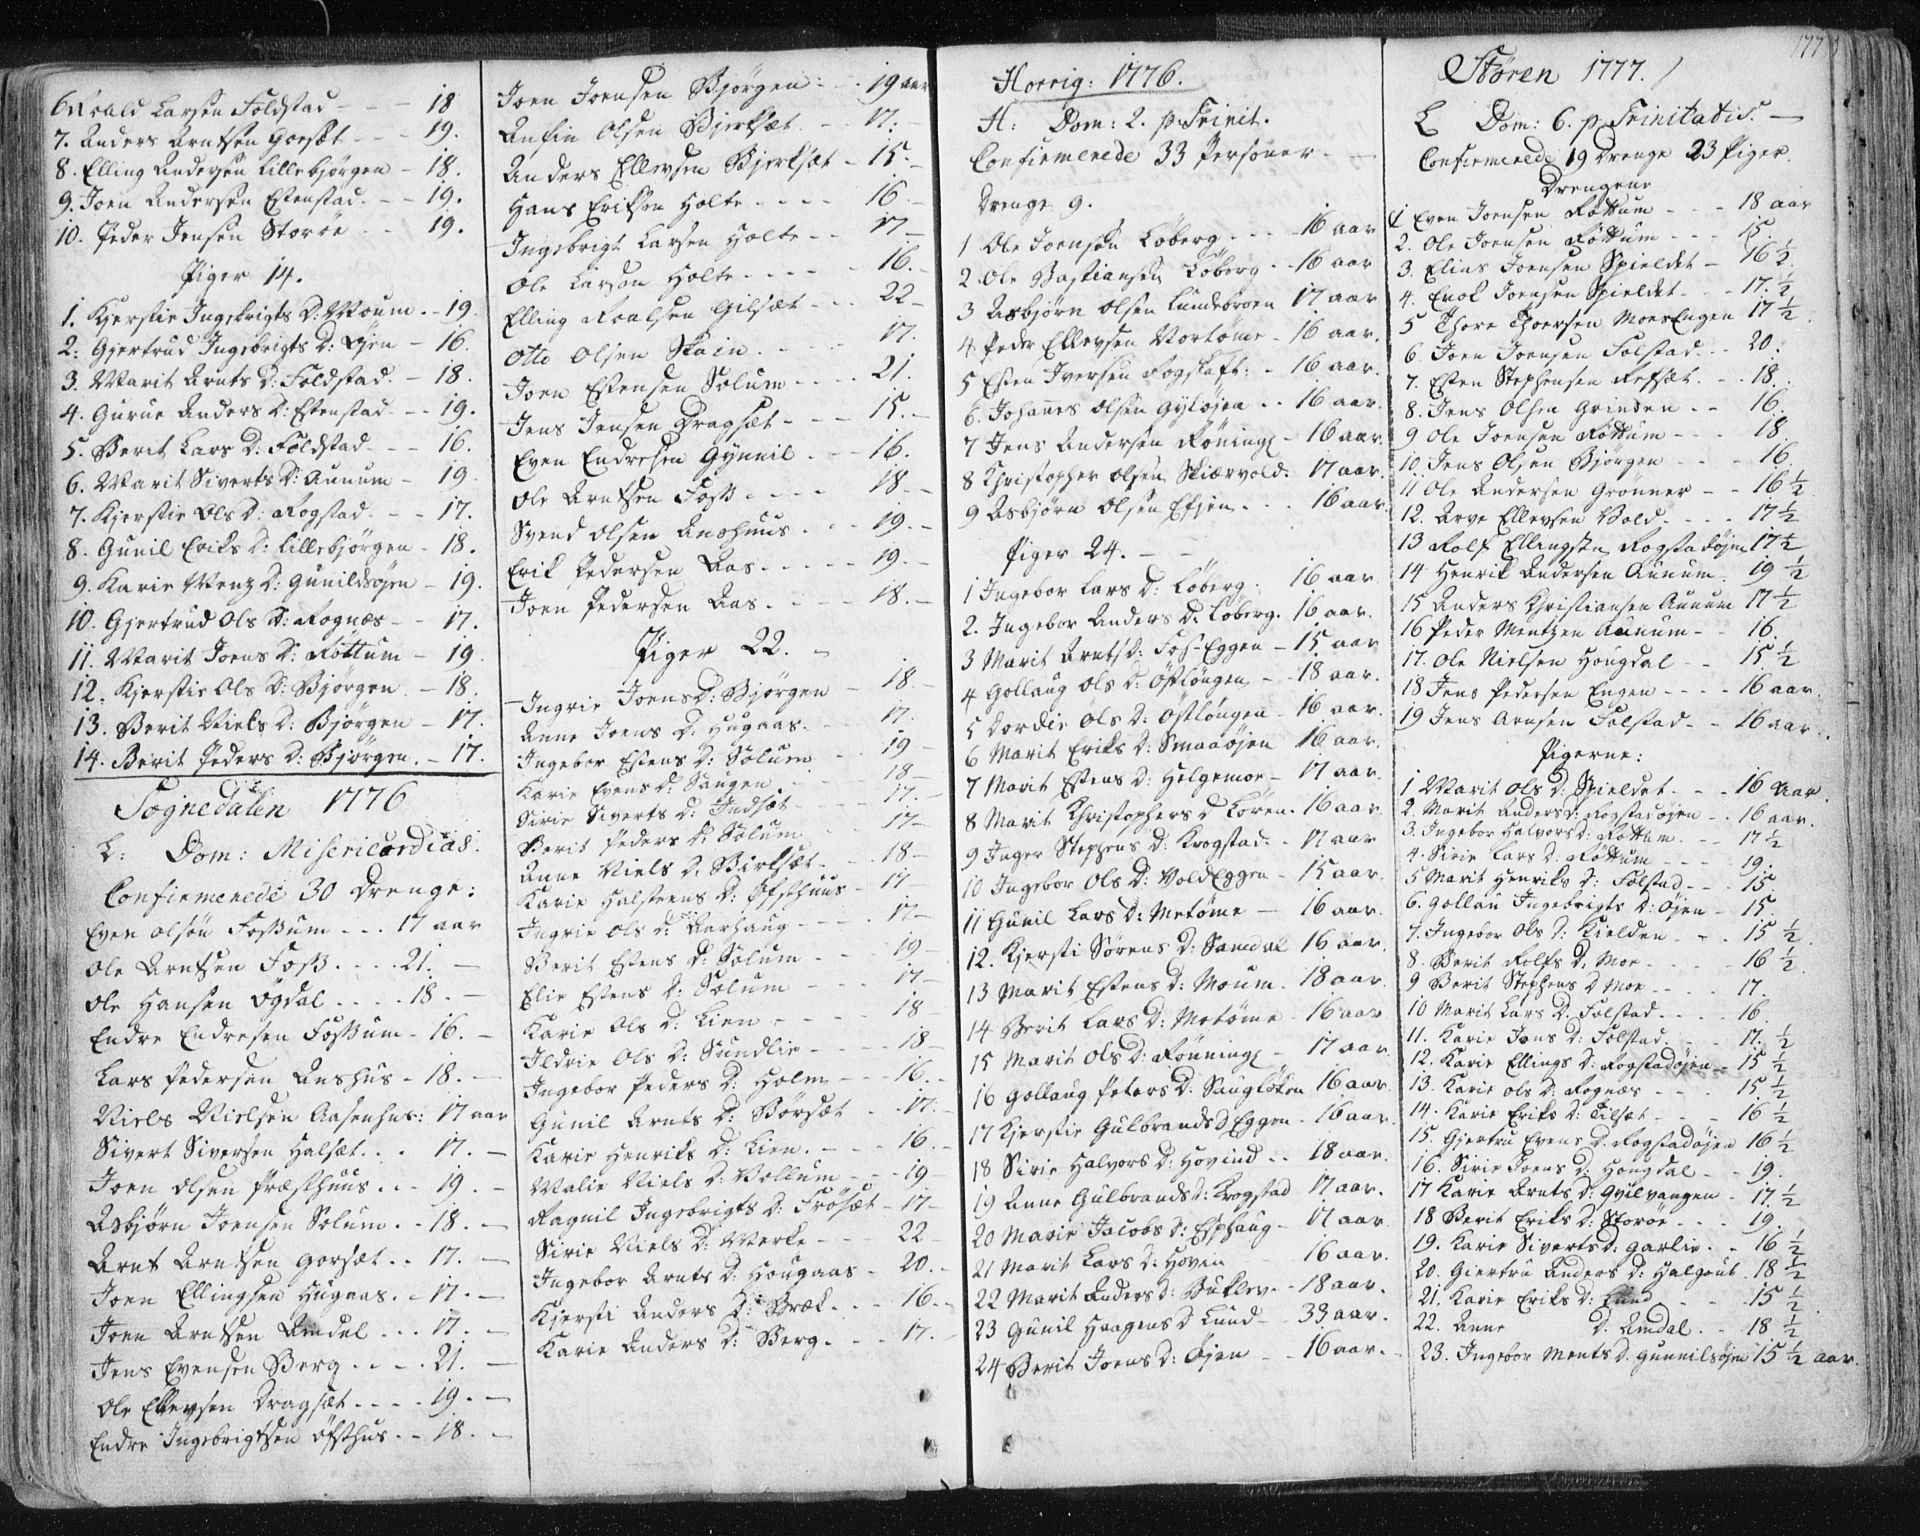 6 Roald Larsen Foldstad - - - 18
7. Anders Arntsen Gorsæt - - - 19.
8. Elling Andersen Lillebjörgen - 18.
9. Joen Andersen Estenstad. - - 19.
10. Peder Jensen Storöe - - 19.
Piger 14.
1. Kjerstie Ingebrigts D: Moum. - 19.
2. Gjertrud Ingebrigts D: Öjen - 16.
3. Marit Arnts D: Foldstad. - 18.
4. Gurue Anders D: Estenstad - - 19.
5. Berit Lars D: Foldstad - - 16.
6. Marit Siverts D: Aunum - 19.
7. Kjerstie Ols D: Rogstad. - - 17.
8. Gunil Eriks D: Lillebjörgen - 18.
9. Karie Menz D: Gunildsöjen - 19.
10. Gjertrud Ols D: Rognæs - - 17.
11. Marit Joens D: Röttum - 19.
12. Kjerstie Ols D: Bjørgen. - 18.
13. Berit Niels D: Bjørgen - 17.
14. Berit Peders D: Bjørgen. - 17.
Sognedalen 1776
L: Dom: Misericordias:
Confirmerede 30 Drenge:
Even Olsön Foßum - - - 17 aar
Ole Arntsen Foß - - - - 21. -
Ole Hansen Ögdal . . . . 18. -
Endre Endresen Foßum - 16. -
Lars Pedersen Anshus - 18. -
Niels Nielsen Aasenhus: 17 aar
Sivert Siversen Halsæt. . . 17. -
Joen Olsen Præsthuus . . - 19. -
Asbjørn Joensen Solum. - - 18. -
Arnt Arntsen Gorsæt . . 17. -
Joen Ellingsen Hugaas. - 17. -
Joen Arntsen Amdal . . . 17. -
Jens Evensen Berg . . - . 21. -
Ole Ellevsen Dragsæt - - - - 19. -
Endre Ingebrigtsen Öfsthus - - 18. -
Joen Joensen Bjørgen - - - 19 aar
Anfin Olsen Bjerksæt - - 17. -
Anders Ellevsen Bjerksæt - 15. -
Hans Eriksen Holte - - - - 16 -
Ingebrigt Larsen Holte - - 17 -
Ole Larsen Holte - - - - - 16. -
Elling Roalsen Gilsæt - - - 22 -
Otte Olsen Skoin - - - 17.
Joen Estensen Solum - - - - 21.
Jens Jensen Dragsæt - - - 15. -
Even Endresen Gynnil - - - 16.
Ole Arntsen Foß - - - - 18. -
Svend Olsen Anshuus . . . 19. -
Erik Pedersen Aas - - - - - 19. -
Joen Pedersen Aas. - - - - 18. -
Piger 22. -
Ingrie Joens D: Bjørgen - 18 -
Anne Joens D: Hugaas. - 17.
Ingebor Estens D: Solum - 19 -
Karie Evens D: Haugen - - 18 -
Sirie Siverts D: Indsæt - 17. -
Berit Peders D: Solum - 17 -
Anne Niels D. Birksæt. - - 18 -
Karie Halsteens D: Öfsthuus - 17 -
Ingrie Ols D: Aarhaug - - - 17 -
Berit Estens D: Solum - - - 19 -
Elie Estens D: Solum - - - 17 -
Karie Ols D: Lien - - - - - 18
Ildrie Ols D: Sundlie - - - 18 -
Ingebor Peders D: Holm - - 16. -
Gunil Arnts D: Börsæt - - 17. -
Karie Henriks D: Lien. - - - 16. -
Malie Niels D: Vollum - - 19
Ragnil Ingebrigts D: Frösæt - 17 -
Sirie Niels D: Merke - - - 22 -
Ingebor Arnts D: Hougaas - 20. -
Kjersti Anders D: Bræk. - - 16. -
Karie Anders D: Berg. - - - 17. -
Horrig: 1776.
H: Dom: 2. p. Trinit.
Confirmerede 33 Personer - -
Drenge 9.
1 Ole Joensøn Löberg. . . 16 aar
2 Ole Bastiansen Löberg - - 16 aar
3 Asbjørn Olsen Lundebroen 17 aar
4. Peder Ellevsen Vortöme - 16 aar.
5 Esten Iversen Rogskaft: - 16 aar.
6. Johannes Olsen Gylöjen - - 16 aar.
7 Jens Andersen Röning - 16 aar.
8 Christopher Olsen Skiærvold. 17 aar.
9 Asbjørn Olsen Essjen. . . 16 aar.
Piger 24. - -
1 Ingebor Lars D: Löberg. 16 aar.
2. Ingebor Anders D. Löberg. 16 aar.
3 Marit Arnts D: Fos-Eggen - 15 aar
4 Gollaug Ols D: Östlöngen - 18 aar.
5 Dordie Ols D: Östlöngen - 16 aar.
6 Marit Eriks D: Smaaöjen 16 aar.
7 Marit Estens D: Helgemoe - 17 aar.
8 Marit Christophers D Lören. 16 aar.
9 Inger Stephens D: Krogstad - 17 aar
10 Ingebor Ols D: Vold Eggen - 15 aar.
11 Gunil Lars D: Metöme - 16 aar.
12. Kjersti Sörens D: Samdal 16 aar.
13 Marit Estens D: Moum. 18 aar.
14 Berit Lars D: Metöme - 16 aar.
15 Marit Ols D: Rönning - 17 aar.
16 Gollaug Peters D: Haugløken 16 aar.
17 Kjerstie Gulbrands D Eggen - 16 aar.
18 Sirie Halvors D: Hovind - - 18 aar.
19 Anne Gulbrands D: Krogstad 17 aar.
20 Marie Jacobs D: Esphaug - 17 aar
21 Marit Lars D: Hovin 16 aar.
22 Marit Anders D: Buklev - 18 aar.
23 Gunil Haagens D Lund - 33 aar.
24 Berit Joens D: Öjen - - 16 aar.
177
Stören 1777.
L Dom: 6. p. Trinitatis. -
Confirmerede 19 Drenge 23 Piger.
Drengene
1 Even Joensen Röttum - - - 18 aar
2. Ole Joensen Röttum - - - 15.
3. Elias Joensen Spieldet - 16 1/2.
4. Enok Joensen Spieldet. - - 17. 1/2
5 Thore Thoersen Moes Engen 17 1/2.
6 Joen Joensen Folstad. . . 20.
7. Esten Stephensen Refsæt. - - 18.
8. Jens Olsen Grinden - - 16.
9 Ole Joensen Röttum - - - 18
10. Jens Olsen Bjørgen - - - 16.
11 Ole Andersen Grönner - - 16 1/2
12. Arve Ellevsen Vold. - - - 17 1/2
13 Rolf Ellingsen Rogstadöjen 17 1/2
14 Henrik Andersen Aunum. 19 1/2
15 Anders Christiansen Aunum 17 1/2
16 Peder Mentzen Aunum - - 16.
17. Ole Nielsen Hougdal - - 15 1/2
18 Jens Pedersen Engen - - - - 16 aar.
19 Jens Arnsen Folstad - - 16 aar.
Pigerne:
1 Marit Ols D: Spieldet. - - 16 Aar.
2 Marit Anders D: Rogstadöjen - . 16 aar.
3. Ingebor Halvors D: Röttum. - - 17 1/2
4. Sirie Lars D. Röttum - - - - 19.
5 Marit Henriks D: Folstad - - - 15.
6. Gollau Ingebrigts D: Öjen - 15.
7. Ingebor Ols D: Kielden - - - 15 1/2
8. Berit Rolfs D. Moe - - - - 16 1/2
9 Berit Stephens D Moe - - - - 17.
10 Marit Lars D. Folstad - - - - 16.
11. Karie Jons D: Folstad. - - - 17. 1/2
12. Karie Ellings D: Rogstadöjen - 15 1/2
13. Karie Ols D: Rognæs - - - - 15. 1/2
14. Karie Eriks D: Tilset - - - 16 1/2
15. Gjertru Evens D. Rogstadöjen 16 1/2
16. Sirie Joens D: Hougdal - - 19.
17 Karie Arnts D: Gvilvangen - 17. 1/2
18 Berit Eriks D: Storöe - - - 19.
19. Karie Siverts D: Garlie. - 16 1/2
20. Giertru Anders D: Halgout. 18 1/2
21. Karie Eriks D: Lund - - - 15 1/2
22. Anne D. Amdal. - - 18 1/2
23. Ingebor Ments D. Gunnilsöjen 15 1/2 aar.